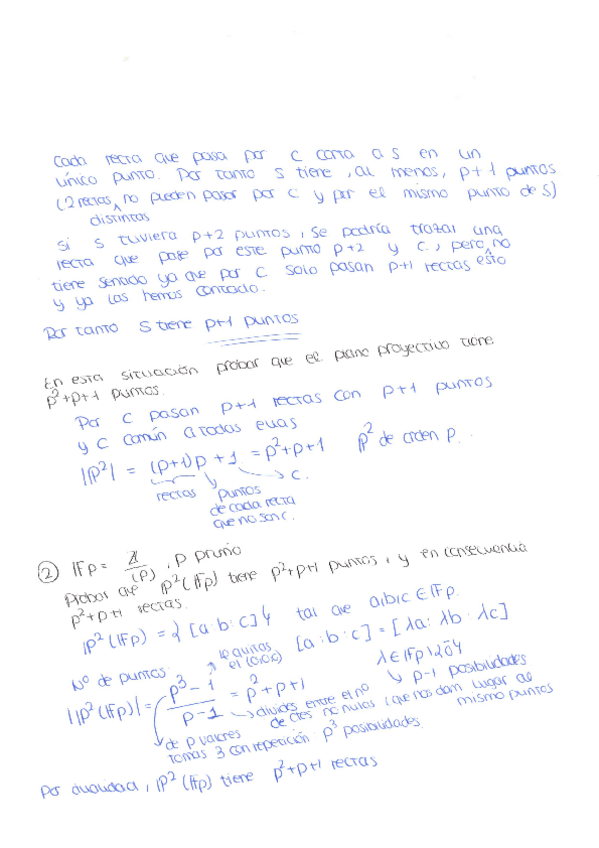 Cada recta que pasa por C corta a S en un
único punto. Por tanto S tiene, al menos, p+1 puntos
(2 rectas no pueden pasar por C y por el mismo punto de S)
distintas
Si S tuviera p+2 puntos, se podría trazar una
recta que pase por este punto p+2 y C, pero no
tiene sentido ya que por C solo pasan p+1 rectas esto
y ya las hemos contado.
Por tanto S tiene p+1 puntos
En esta situación probar que el plano proyectivo tiene
p²+p+1 puntos.
Por C pasan p+1 rectas con p+1 puntos
y C común a todas ellas
|P²| = (p+1)p + 1 = p²+p+1 P² de orden p.
rectas puntos C.
de cada recta
que no son C.
② Fp = Z/(p), p primo
Probar que P²(Fp) tiene p²+p+1 puntos, y en consecuencia
p²+p+1 rectas.
P²(Fp) = {[a:b:c]} tal que a,b,c ∈ Fp
le quitas
el (0,0,0) [a:b:c] = [λa: λb: λc]
Nº de puntos: λ∈Fp\{0}
p-1 posibilidades
|P²(Fp)| = p³-1/p-1 = p²+p+1
divides entre el nº
de ctes no nulas, que nos dan lugar al
mismo punto
de p valores
tomas 3 con repetición p³ posibilidades.
Por dualidad, P²(Fp) tiene p²+p+1 rectas